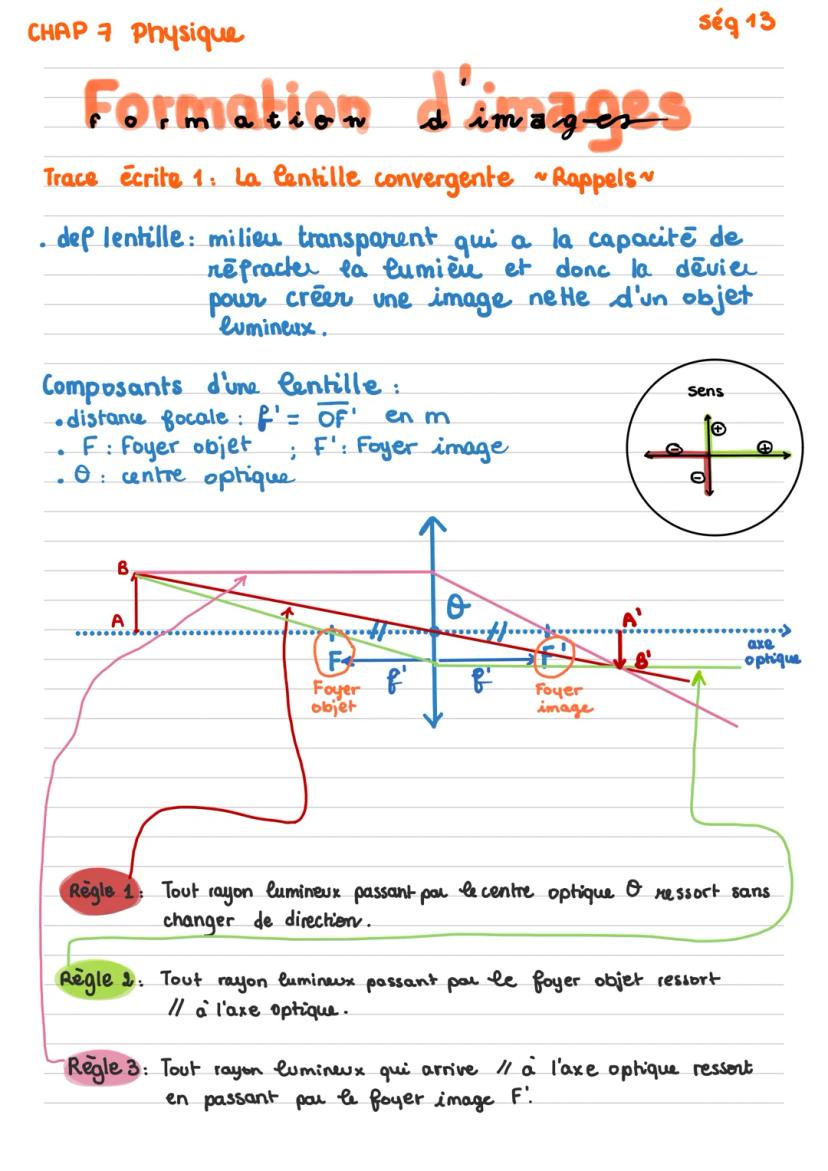 CHAP 7 Physique
séq 13
Formation d'images
Formation d'images
Trace écrite 1: La lentille convergente ~Rappels~
. def lentille: milieu transparent qui a la capacité de
réfracter la lumière et donc la dévier
pour créer une image nette d'un objet
lumineux.
Composants d'une lentille :
• distance focale : f' = OF' en m
• F : Foyer objet ; F' : Foyer image
• O : centre optique
Sens
+
- +
-
B
O
A
A'
axe
optique
F
F'
B'
f'
f'
Foyer
objet
Foyer
image
Règle 1: Tout rayon lumineux passant par le centre optique O ressort sans
changer de direction.
Règle 2: Tout rayon lumineux passant par le foyer objet ressort
// à l'axe optique.
Règle 3: Tout rayon lumineux qui arrive // à l'axe optique ressort
en passant par le foyer image F'.